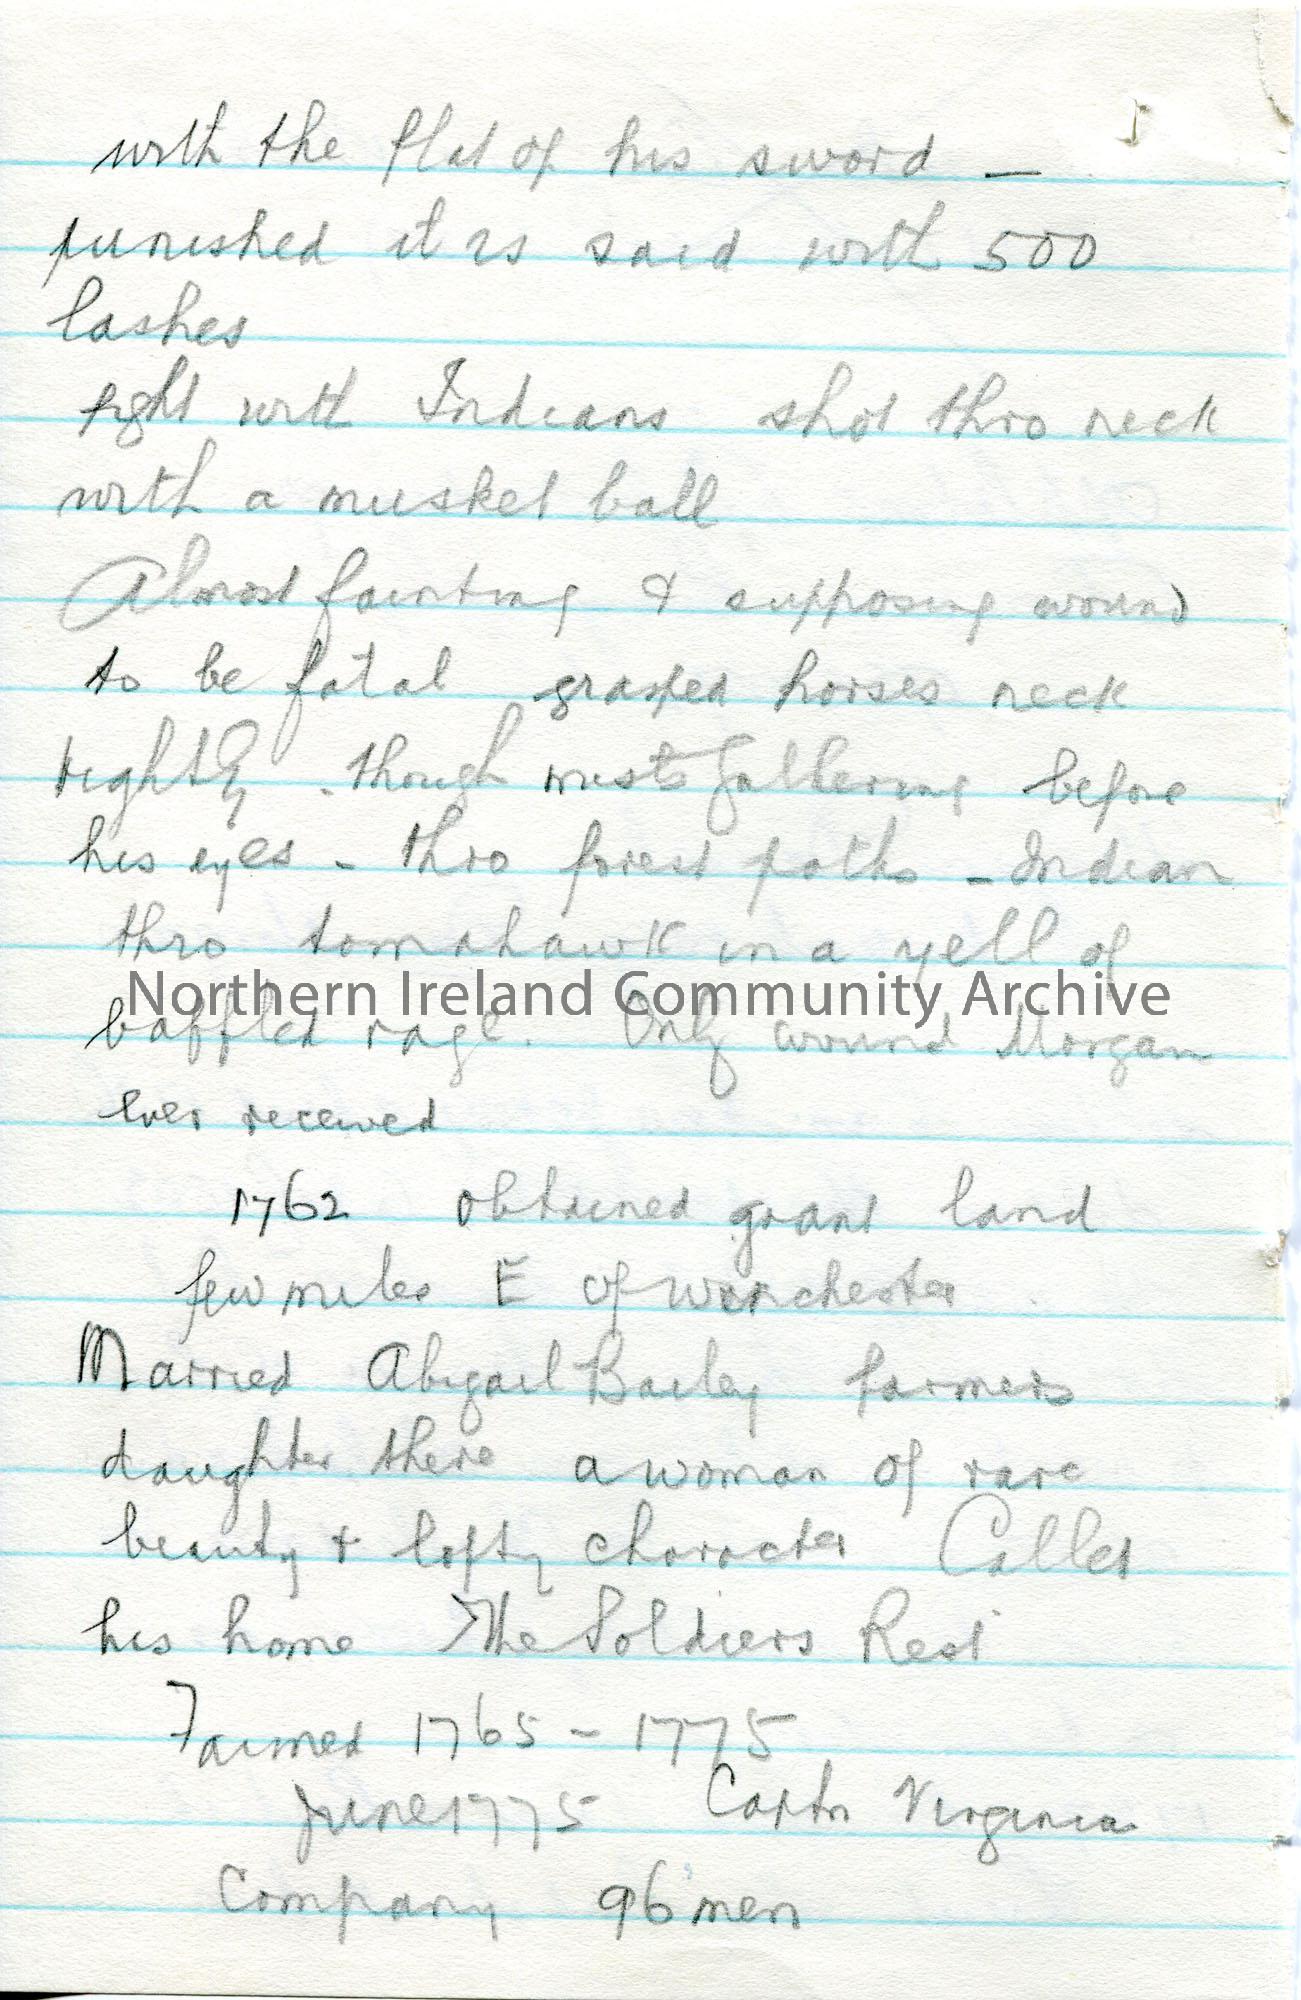 with the flat of his sword —
punished it is said with 500
lashes
fight with Indians shot thro neck
with a musket ball
Almost fainting & supposing wound
to be fatal grasped horses neck
tightly - though mists gathering before
his eyes - thro forest paths - Indian
thro tomahawk in a yell of
Northern Ireland Community Archive
baffled rage. Only wound Morgan
ever received
1762 obtained grant land
few miles E of Winchester
Married Abigail Bailey farmers
daughter there a woman of rare
beauty + lofty character Called
his home The Soldiers Rest
Farmed 1765 - 1775
June 1775 Captn Virginia
Company 96 men